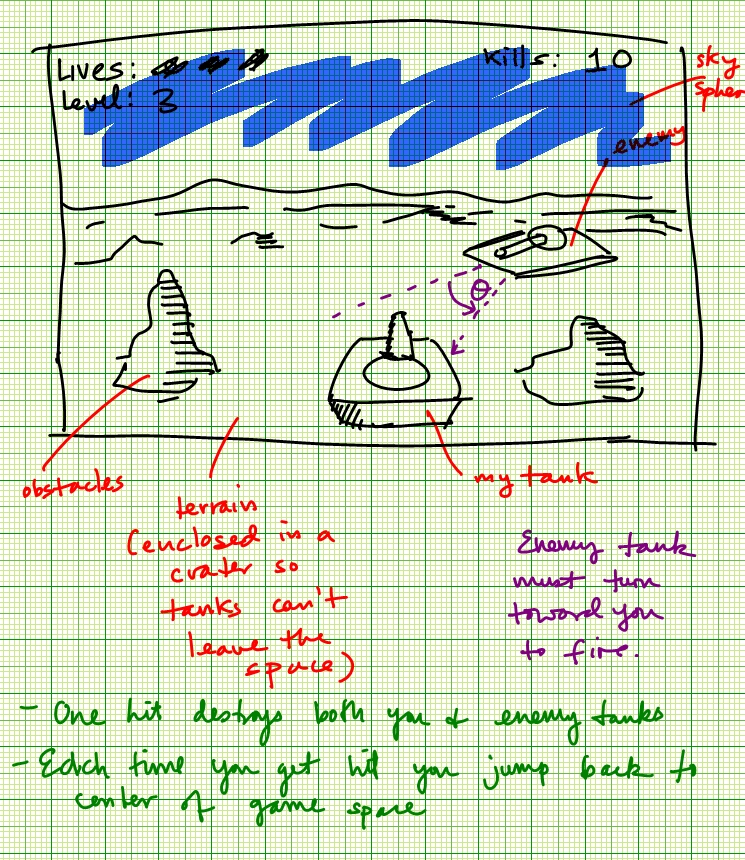 Lives:
Kills: 10
Level: 3
sky
spher
enemy
θ
obstacles
my tank
terrain
(enclosed in a
crater so
tanks can't
leave the
space)
Enemy tank
must turn
toward you
to fire.
- One hit destroys both you & enemy tanks
- Each time you get hit you jump back to
center of game space